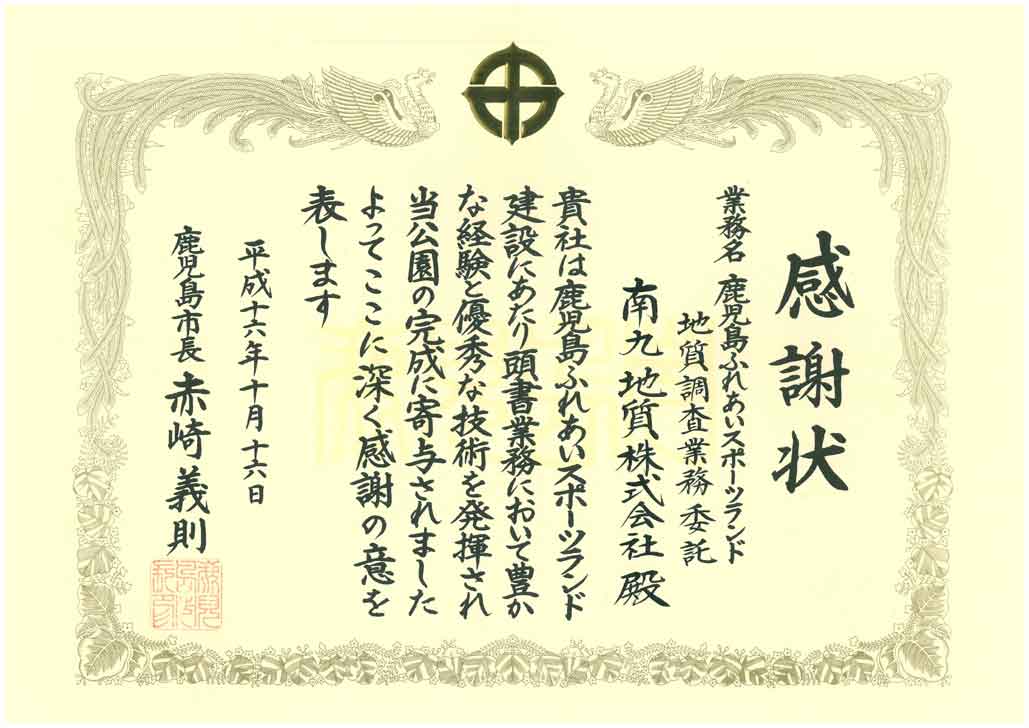 感謝状
業務名 鹿児島ふれあいスポーツランド
地質調査業務委託
南九地質株式会社 殿
貴社は鹿児島ふれあいスポーツランド
建設にあたり頭書業務において豊か
な経験と優秀な技術を発揮され
当公園の完成に寄与されました
よってここに深く感謝の意を
表します
平成十六年十月十六日
鹿児島市長 赤崎義則